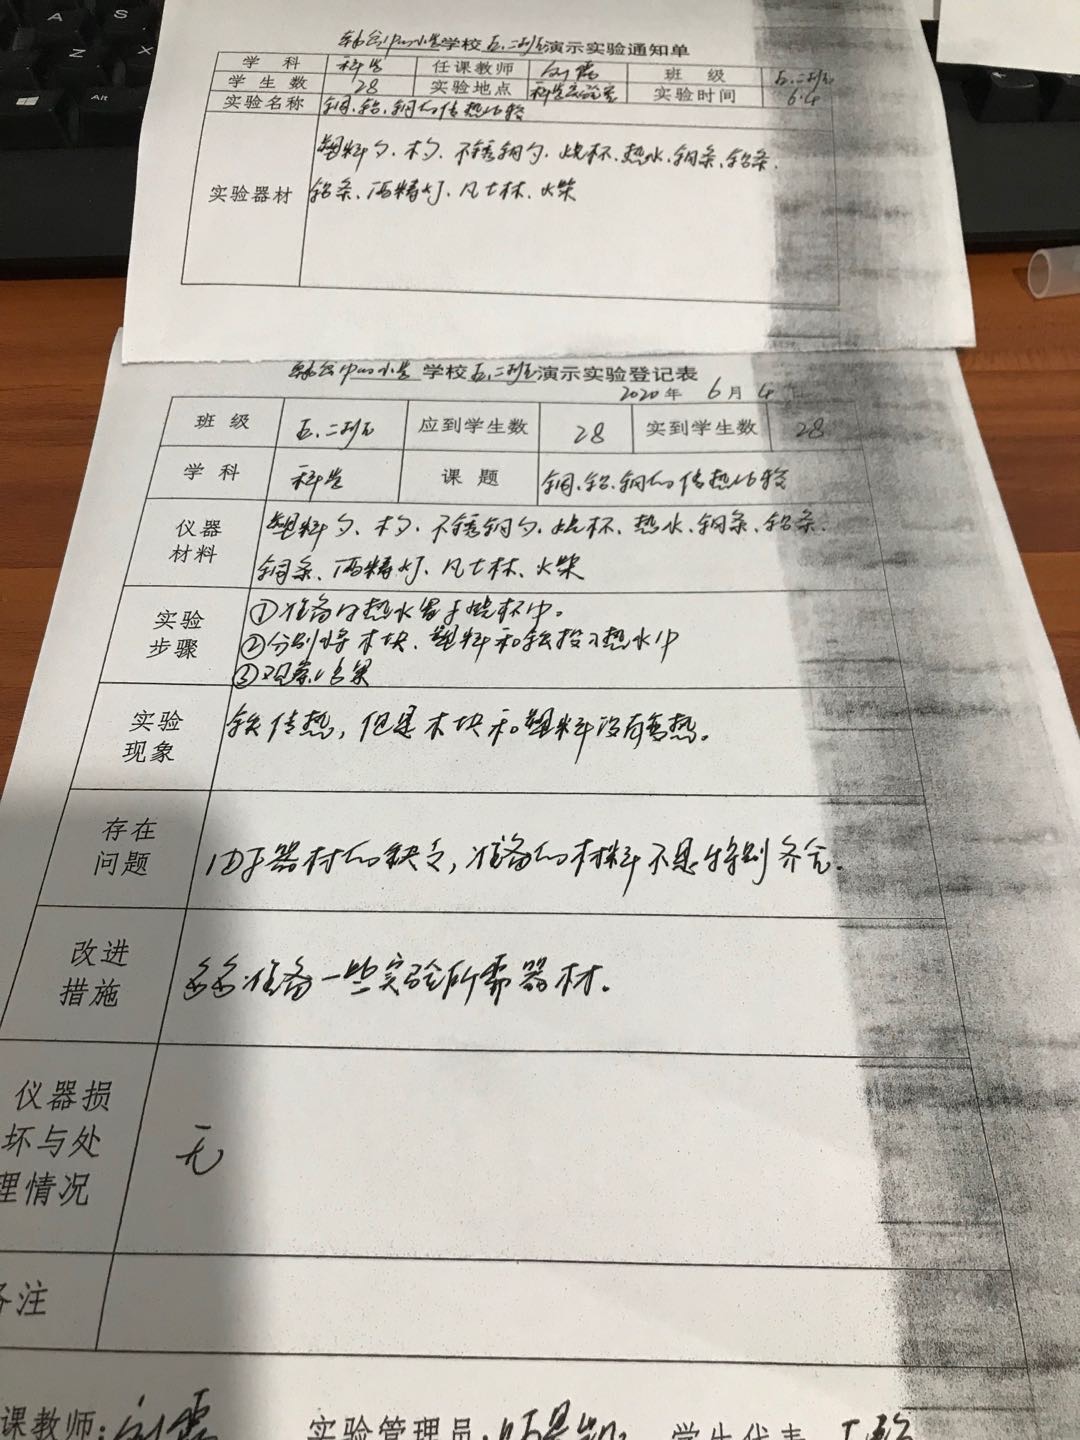 中心小学学校五.二班演示实验通知单
学 科 科学 任课教师 刘震 班 级 五.二班
学 生 数 28 实验地点 科学实验室 实验时间 6.4
实验名称 铜、铝、钢的传热比较
实验器材 塑料勺、木勺、不锈钢勺、烧杯、热水、铜条、铝条、
铝条、酒精灯、凡士林、火柴
中心小学 学校五.二班演示实验登记表
2020年 6月 4日
班 级 五.二班 应到学生数 28 实到学生数 28
学 科 科学 课 题 铜、铝、钢的传热比较
仪器材料 塑料勺、木勺、不锈钢勺、烧杯、热水、铜条、铝条、
钢条、酒精灯、凡士林、火柴
实验步骤 ①准备的热水置于烧杯中。
②分别将木块、塑料和铁投入热水中
③观察结果
实验现象 铁传热，但是木块和塑料没有传热。
存在问题 由于器材的缺乏，准备的材料不是特别齐全。
改进措施 多多准备一些实验所需器材。
仪器损坏与处理情况 无
备注
课教师: 刘震 实验管理员: 学生代表